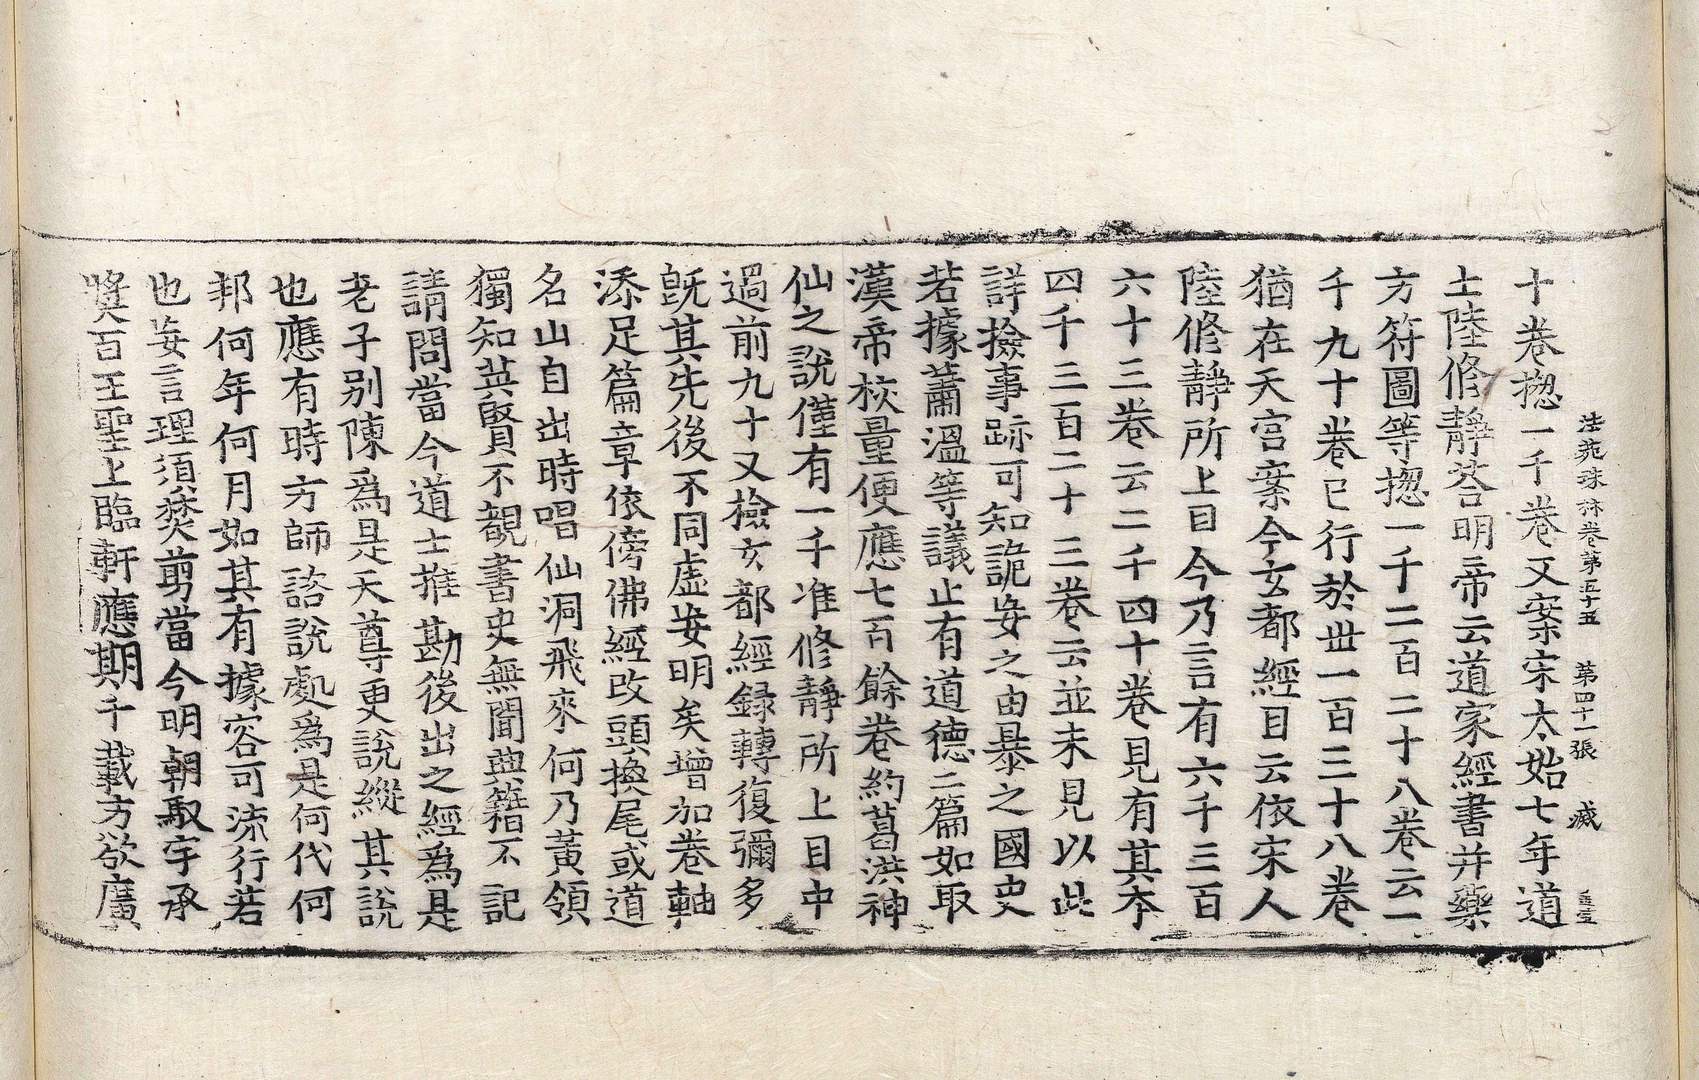 法苑珠林卷第五十五 第四十一張 滅
十卷揔一千卷又案宋太始七年道
士陸修靜荅明帝云道家經書并藥
方符圖等揔一千二百二十八卷云一
千九十卷已行於世一百三十八卷
猶在天宫案今玄都經目云依宋人
陸修靜所上目今乃言有六千三百
六十三卷云二千四十卷見有其本
四千三百二十三卷云並未見以此
詳撿事跡可知詭妄之由暴之國史
若據蕭温等議止有道德二篇如取
漢帝校量便應七百餘卷約葛洪神
仙之說僅有一千准修靜所上目中
過前九十又撿玄都經録轉復彌多
旣其先後不同虚妄明矣增加卷軸
添足篇章依傍佛經改頭換尾或道
名山自出時唱仙洞飛來何乃黃領
獨知英賢不覩書史無聞典籍不記
請問當今道士推勘後出之經爲是
老子别陳爲是天尊更說縱其說
也應有時方師諮說處爲是何代何
邦何年何月如其有據容可流行若
也妄言理須焚剪當今明朝馭宇承
奬百王聖上臨軒應期千載方欲廣